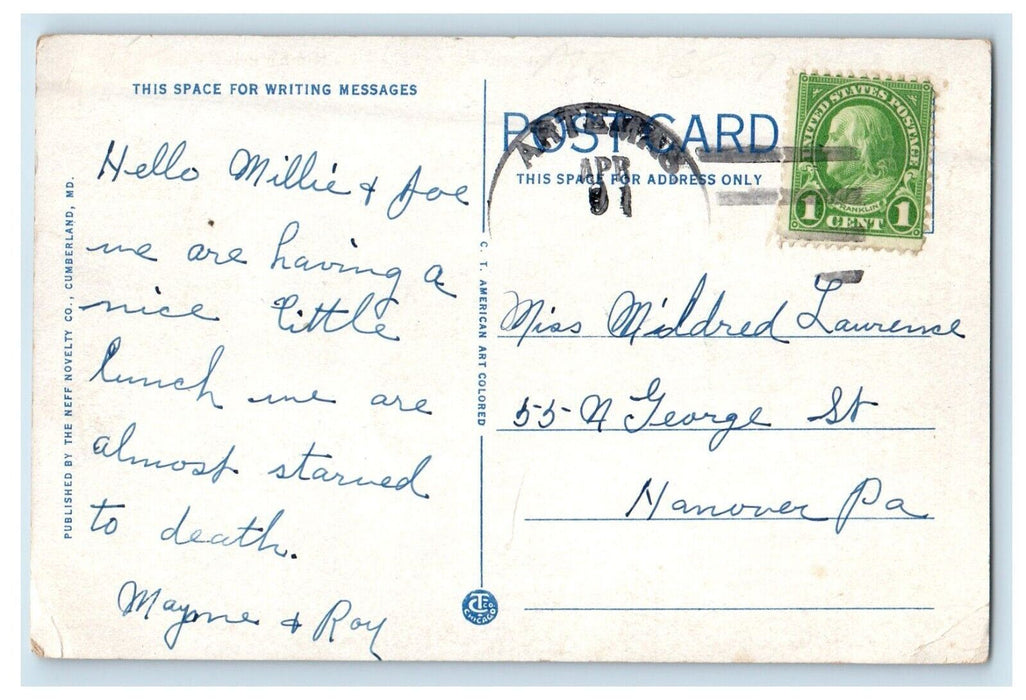 THIS SPACE FOR WRITING MESSAGES
Hello Millie & Joe
we are having a
nice little
lunch we are
almost starved
to death.
Mayme & Roy
PUBLISHED BY THE NEFF NOVELTY CO., CUMBERLAND, MD.
C. T. AMERICAN ART COLORED
POST CARD
THIS SPACE FOR ADDRESS ONLY
ARTEMAS
APR
UNITED STATES POSTAGE
FRANKLIN
1 CENT 1
Miss Mildred Lawrence
55 N George St
Hanover Pa
CT CO
CHICAGO